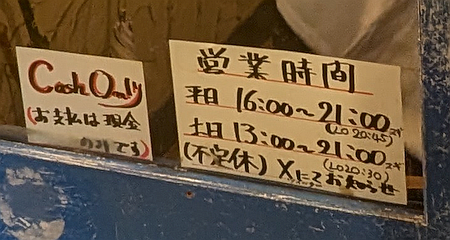 Cash Only
(お支払は現金
のみです)
営業時間
平日 16:00～21:00スギ
(LO 20:45)
土日 13:00～21:00スギ
(LO 20:30)
(不定休) Xにてお知らせ